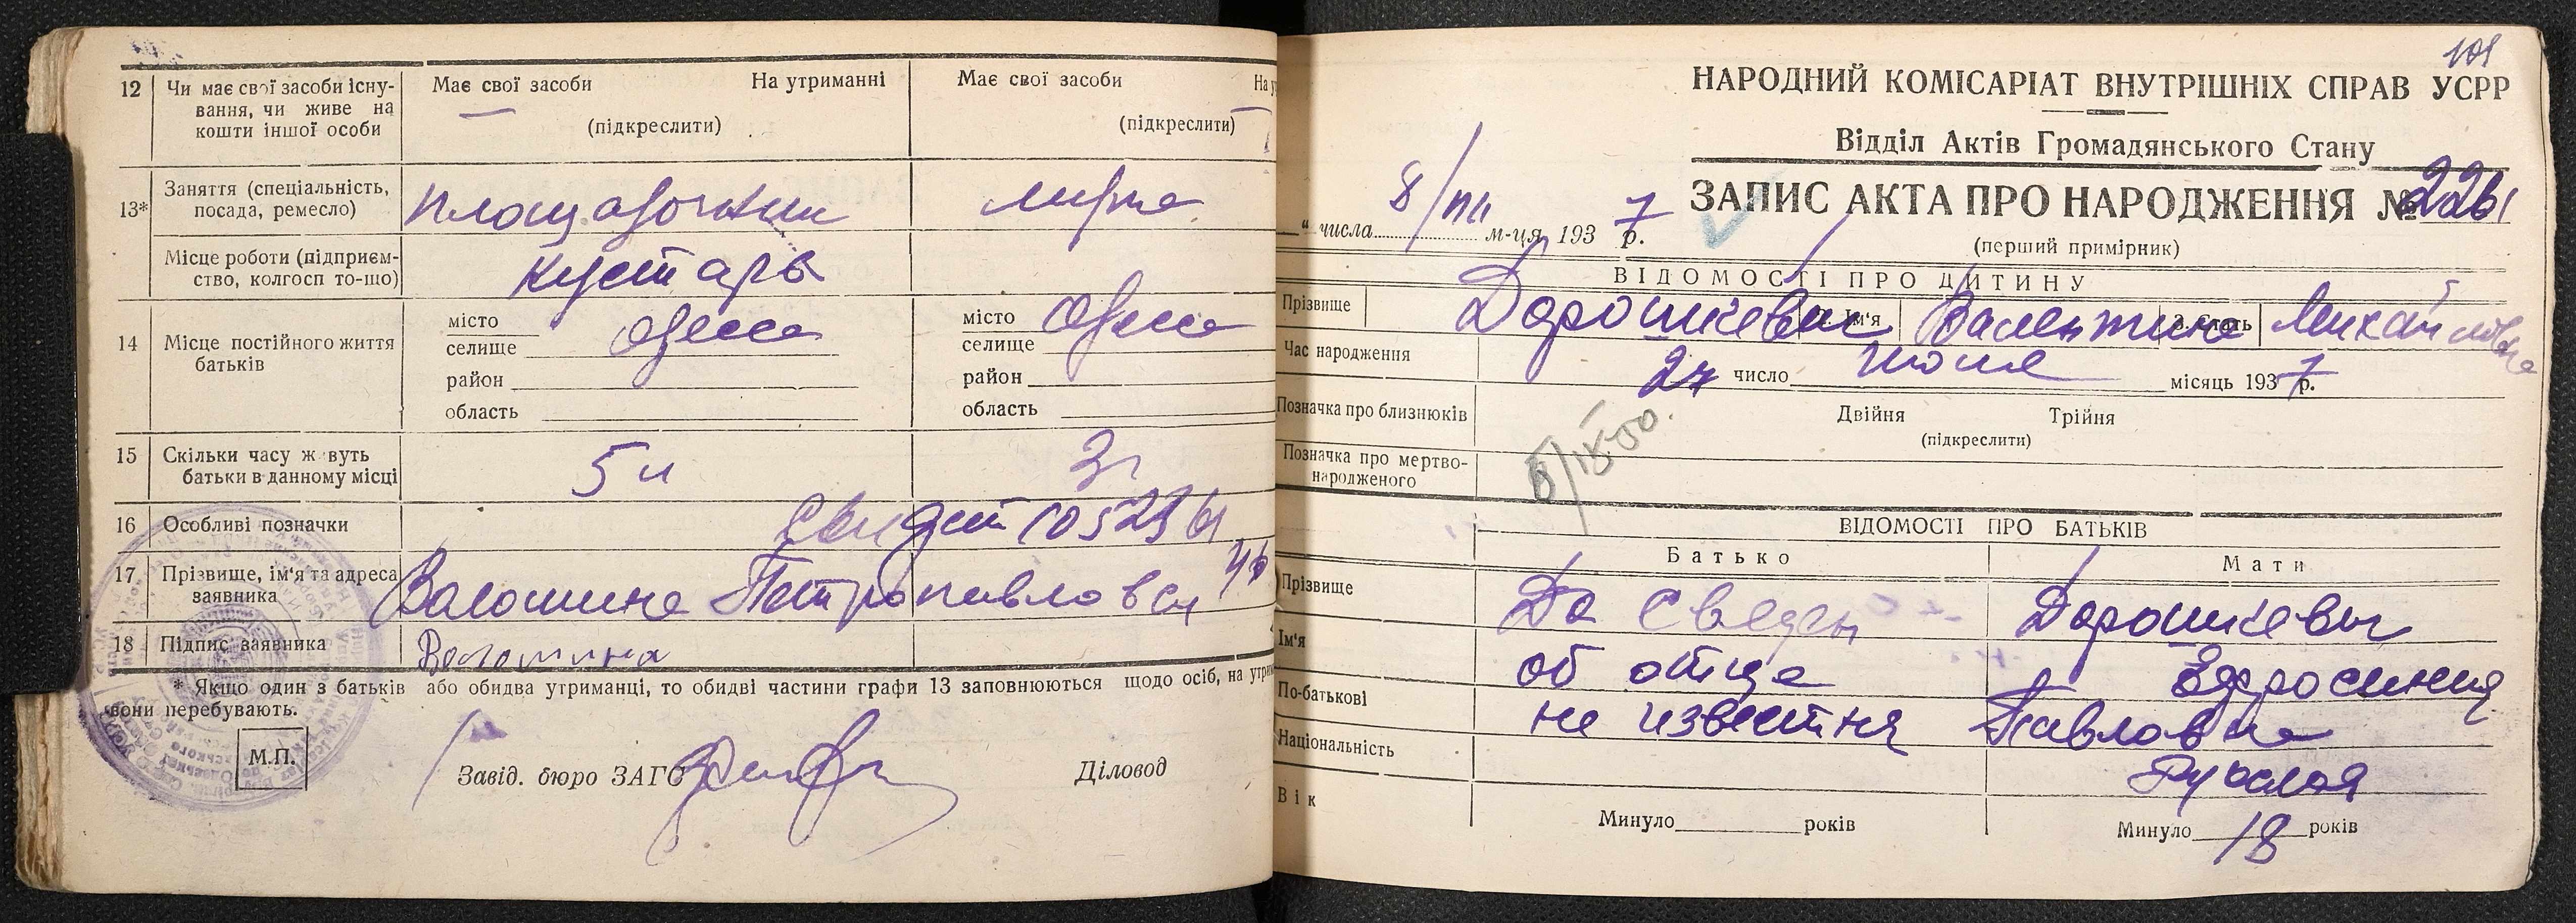 12 Чи має свої засоби існу-
вання, чи живе на
кошти іншої особи
Має свої засоби На утриманні
(підкреслити)
Має свої засоби На у
(підкреслити)
13* Заняття (спеціальність,
посада, ремесло)
Місце роботи (підприєм-
ство, колгосп то-що)
кустарь
14 Місце постійного життя
батьків
місто
селище Одесса
район
область
місто Одесса
селище
район
область
15 Скільки часу ж вуть
батьки в данному місці
5 л 3 г
16 Особливі позначки
17 Прізвище, ім'я та адреса
заявника
Волошина Петропавловск
18 Підпис заявника
Волошина
* Якщо один з батьків або обидва утриманці, то обидві частини графи 13 заповнюються щодо осіб, на утрим
вони перебувають.
М.П.
Завід. бюро ЗАГС Діловод
101
НАРОДНИЙ КОМІСАРІАТ ВНУТРІШНІХ СПРАВ УСРР
Відділ Актів Громадянського Стану
ЗАПИС АКТА ПРО НАРОДЖЕННЯ №
(перший примірник)
" числа 8/VIII м-ця 1937 р.
ВІДОМОСТІ ПРО ДИТИНУ
Прізвище Дорошкевич Ім'я Валентина 3. Стать Михайловна
Час народження
27 число июля місяць 1937 р.
Позначка про близнюків
Двійня Трійня
(підкреслити)
Позначка про мертво-
народженого
ВІДОМОСТІ ПРО БАТЬКІВ
Батько Мати
Прізвище Да Сведен Дорошкевич
Ім'я об отце Ефросиния
По-батькові не известня Павловна
Національність Русская
Вік
Минуло років
Минуло 18 років